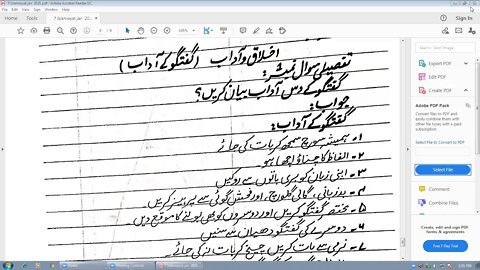 7 Islamiyat jan 2021.pdf - Adobe Acrobat Reader DC
Home
Tools
Sign In
اخلاق و آداب (گفتگو کے آداب)
تفصیلی سوال نمبر:
گفتگو کے دس آداب بیان کریں؟
جواب:
گفتگو کے آداب:
۱۔ ہمیشہ سوچ سمجھ کر بات کی جائے
۲۔ الفاظ کا چناؤ اچھا ہو
۳۔ اپنی زبان کو بری باتوں سے روکیں
۴۔ بدزبانی، گالی گلوچ، اور فحش گوئی سے پرہیز کریں
۵۔ مختصر گفتگو کریں اور دوسروں کو بھی بولنے کا موقع دیں
۶۔ دوسرے کی گفتگو دھیان سے سنیں
۷۔ نرمی سے بات کریں، چیخ کر بات نہ کی جائے۔
Export PDF
Edit PDF
Create PDF
Adobe PDF Pack
Convert files to PDF and easily combine them with other file types with a paid subscription.
Select File to Convert to PDF
Select File
Combine Files
Create, edit and sign PDF forms & agreements
Free 7-Day Trial